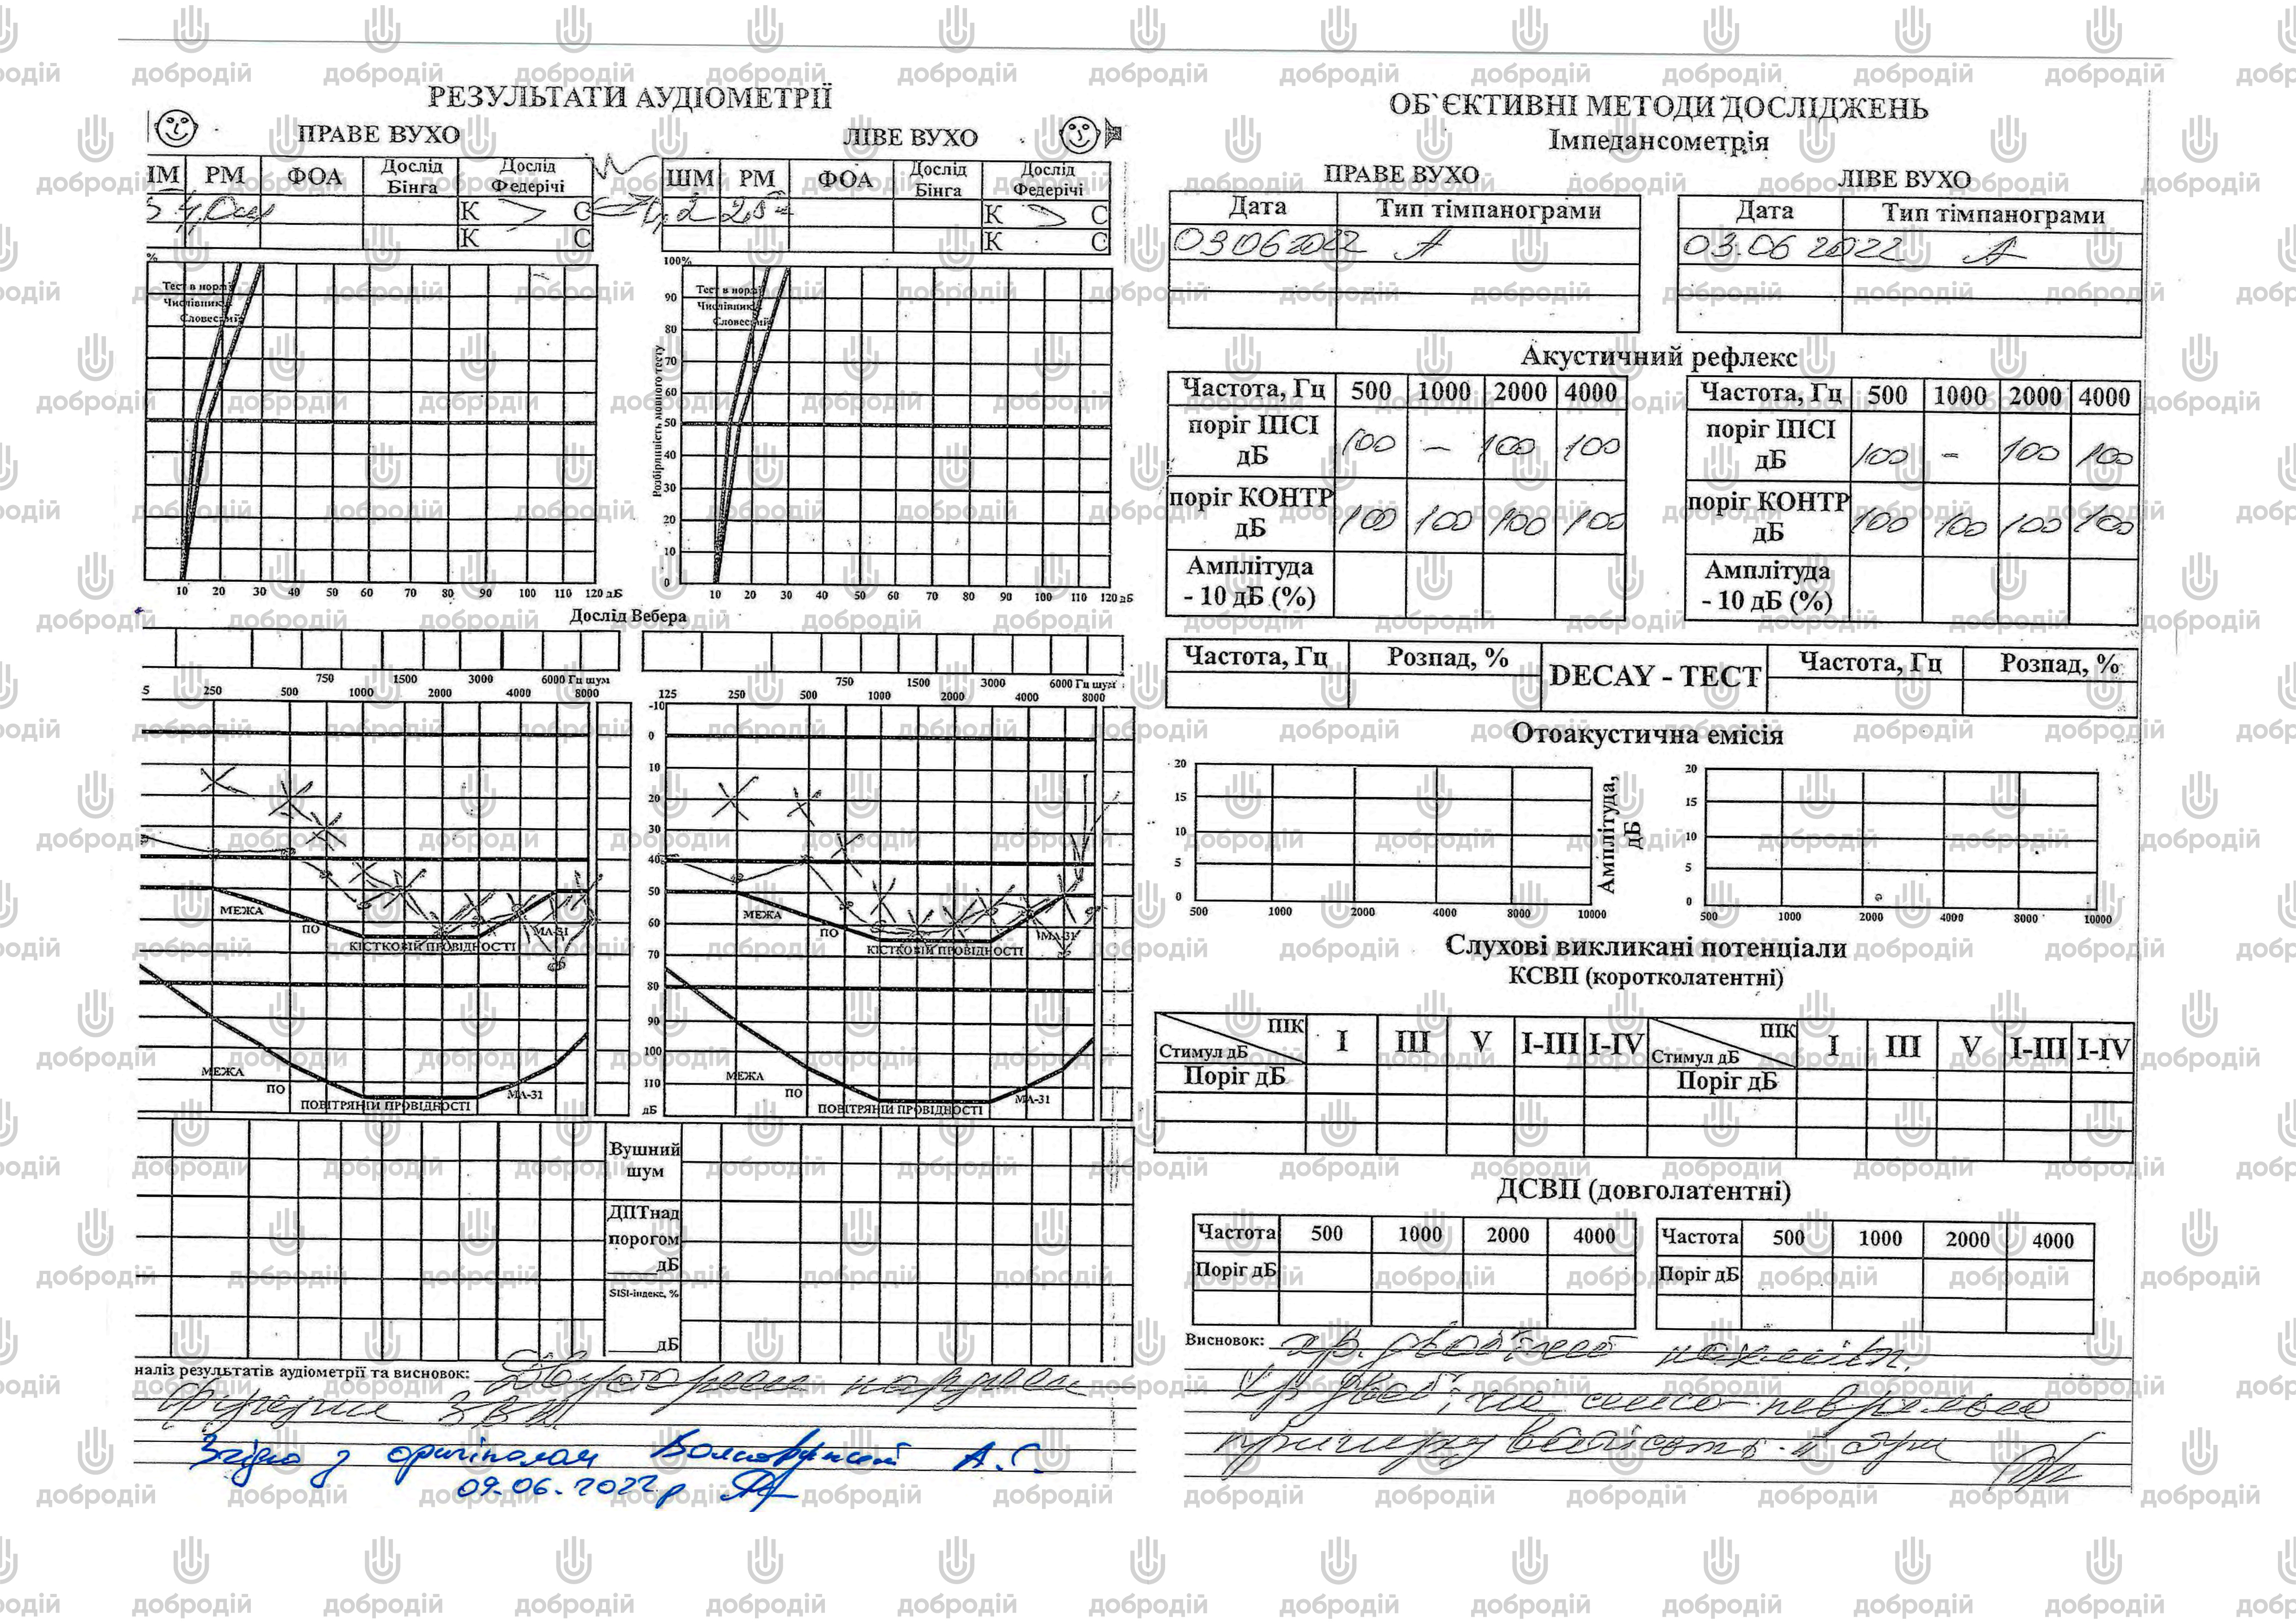 РЕЗУЛЬТАТИ АУДІОМЕТРІЇ
ПРАВЕ ВУХО
ЛІВЕ ВУХО
ІМ РМ ФОА Дослід Бінга Дослід Федерічі
К С
К С
ШМ РМ ФОА Дослід Бінга Дослід Федерічі
К С
К С
%
Тест в нормі
Числівник
Словесний
10 20 30 40 50 60 70 80 90 100 110 120 дБ
100%
90
80
70
60
50
40
30
20
10
0
Розбірливість мовного тесту
Тест в нормі
Числівник
Словесний
10 20 30 40 50 60 70 80 90 100 110 120 дБ
Дослід Вебера
750 1500 3000 6000 Гц шум
5 250 500 1000 2000 4000 8000
750 1500 3000 6000 Гц шум
125 250 500 1000 2000 4000 8000
-10
0
10
20
30
40
50
60
70
80
90
100
110
дБ
МЕЖА
ПО
КІСТКОВІЙ ПРОВІДНОСТІ
МА-31
МЕЖА
ПО
ПОВІТРЯНІЙ ПРОВІДНОСТІ
МА-31
МЕЖА
ПО
КІСТКОВІЙ ПРОВІДНОСТІ
МА-31
МЕЖА
ПО
ПОВІТРЯНІЙ ПРОВІДНОСТІ
МА-31
Вушний
шум
ДПТнад
порогом
дБ
SISI-індекс, %
дБ
наліз результатів аудіометрії та висновок:
Згідно з оригіналом А.С.
09.06.2022 р
ОБ`ЄКТИВНІ МЕТОДИ ДОСЛІДЖЕНЬ
Імпедансометрія
ПРАВЕ ВУХО
ЛІВЕ ВУХО
Дата Тип тімпанограми
03 06 2022 А
Дата Тип тімпанограми
03.06 2022 А
Акустичний рефлекс
Частота, Гц 500 1000 2000 4000
поріг ІПСІ дБ 100 – 100 100
поріг КОНТР дБ 100 100 100 100
Амплітуда - 10 дБ (%)
Частота, Гц 500 1000 2000 4000
поріг ІПСІ дБ 100 – 100 100
поріг КОНТР дБ 100 100 100 100
Амплітуда - 10 дБ (%)
Частота, Гц Розпад, % DECAY - ТЕСТ Частота, Гц Розпад, %
Отоакустична емісія
20
15
10
5
0
500 1000 2000 4000 8000 10000
Амплітуда, дБ
20
15
10
5
0
500 1000 2000 4000 8000 10000
Слухові викликані потенціали
КСВП (коротколатентні)
ПІК I III V I-III I-IV ПІК I III V I-III I-IV
Стимул дБ Стимул дБ
Поріг дБ Поріг дБ
ДСВП (довголатентні)
Частота 500 1000 2000 4000
Поріг дБ
Частота 500 1000 2000 4000
Поріг дБ
Висновок:
добродій